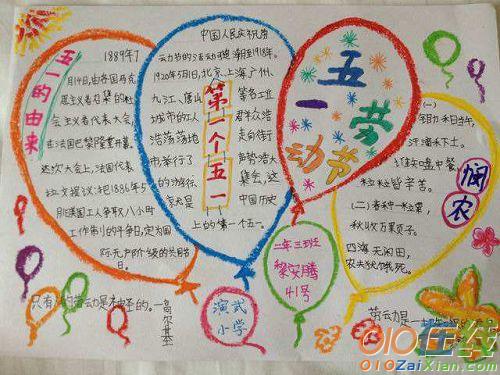 五一的由来
1889年7
月14日,由各国马克
思主义者召集的社
会主义者代表大会,
在法国巴黎隆重开幕。
这次大会上,法国代表
拉文提议:把1886年5
月1日美国工人争取八小时
工作制的斗争日,定为国
际无产阶级的共同节
日。
中国人民庆祝劳
动节的活动可追溯到1918年。
1920年5月1日,北京、上海、广州、
九江、唐山
等各工业
城市的工
群众浩
浩荡荡地
走向街
市举行了
声势浩大
的游行、
集会,这
就是
中国历史
上的第一个五一。
第一个五一
五一劳动节
(一)
锄禾日当午,
汗滴禾下土。
谁知盘中餐,
粒粒皆辛苦。
(二)春种一粒粟,
秋收万颗子。
四海无闲田,
农夫犹饿死。
悯农
二年三班
梁安腾
41号
演武
小学
只有
劳动是神圣的。—高尔基
劳动是一
010在线
010ZaiXian.com